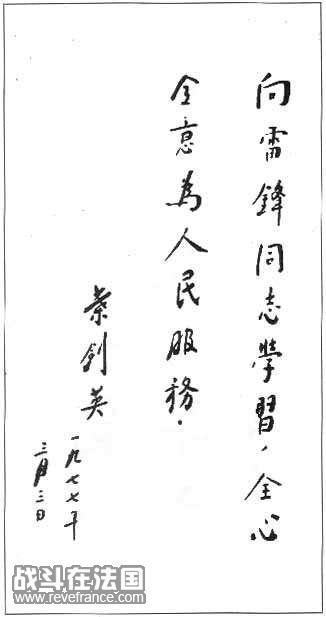 向雷鋒同志學習，全心
全意為人民服務．
葉劍英
一九七七年
三月三日
战斗在法国
www.revefrance.com